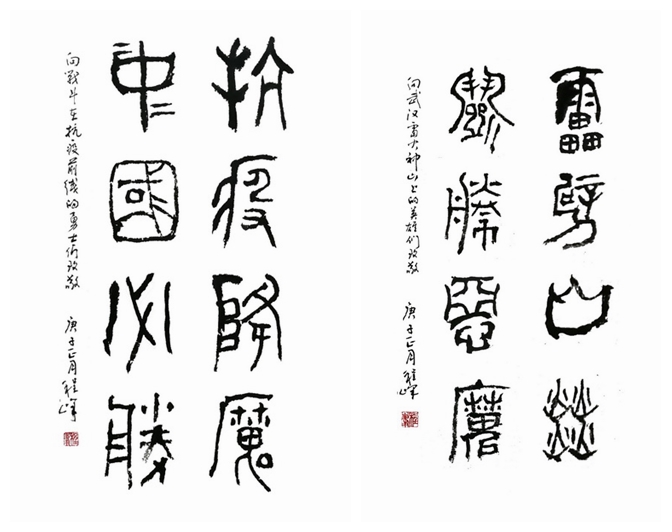 抗疫降魔
中國必勝
向戰斗在抗疫前綫的勇士们致敬 庚子正月 程峰
雷劈山燚
鬭勝惡魔
向武汉雷火神山上的英雄们致敬 庚子正月 程峰